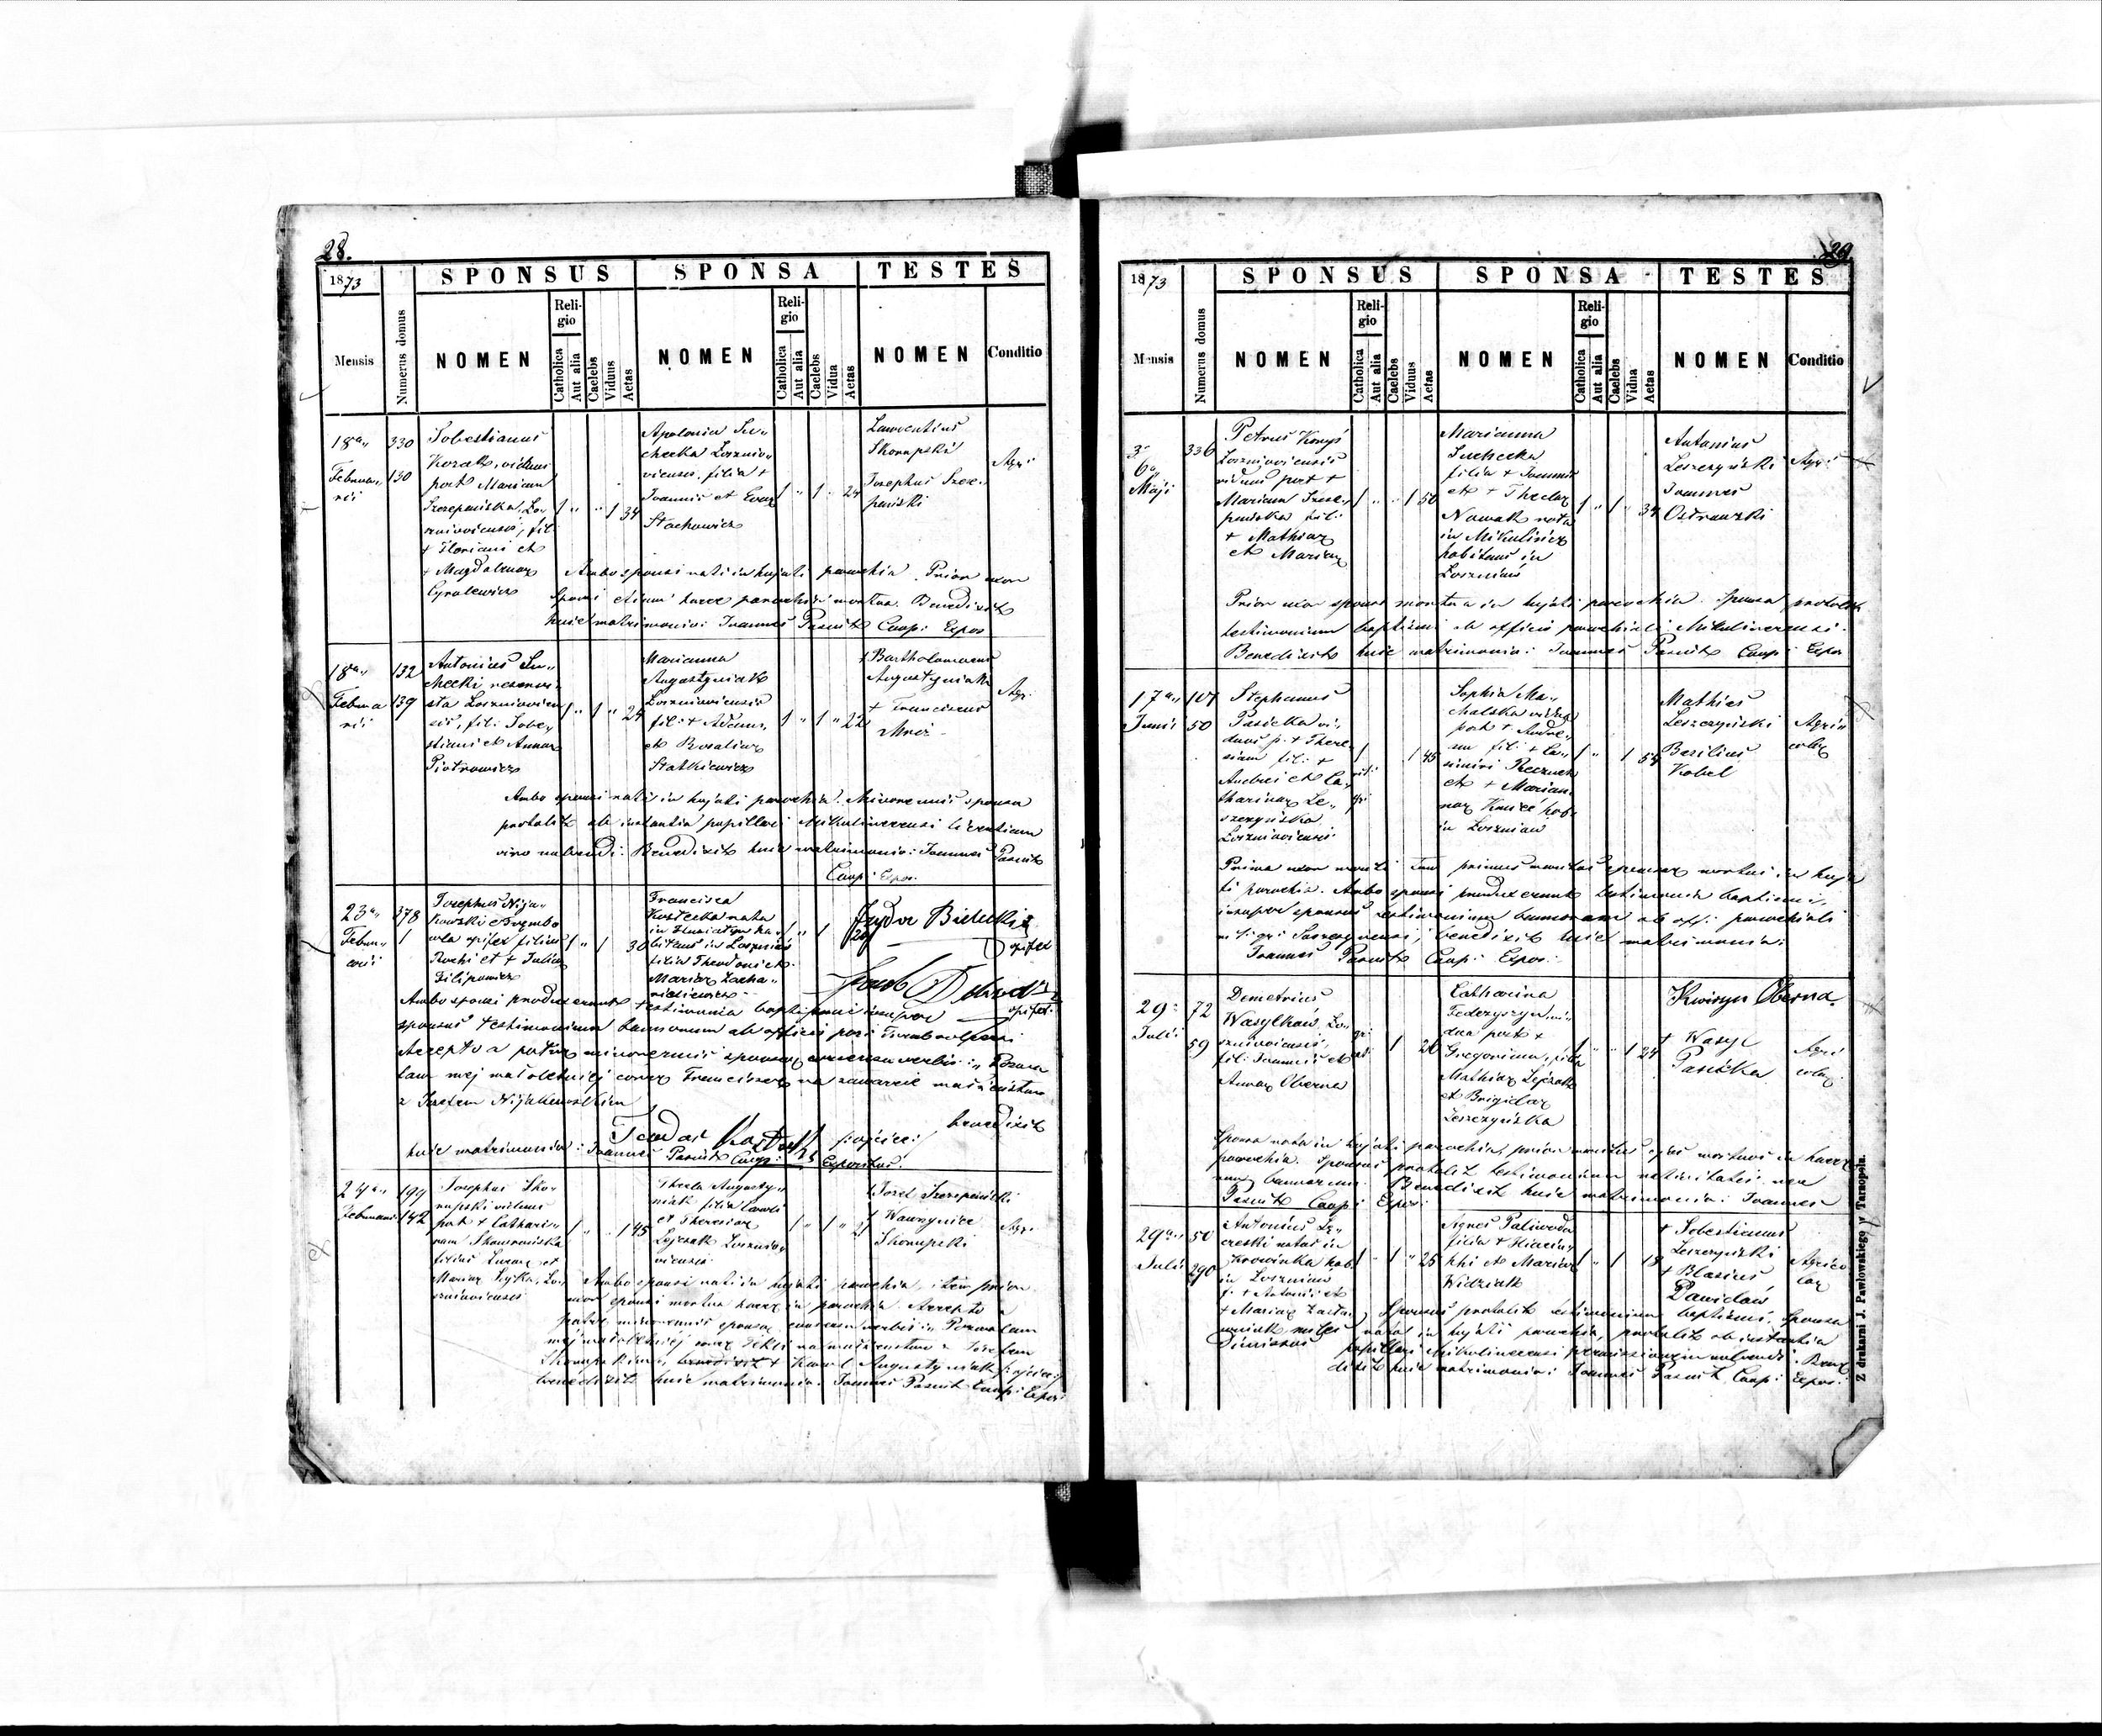 28.
1873
SPONSUS
SPONSA
TESTES
Mensis
Numerus domus
NOMEN
Religio
Catholica
Aut alia
Caelebs
Viduus
Aetas
NOMEN
Religio
Catholica
Aut alia
Caelebs
Vidua
Aetas
NOMEN
Conditio
18a
Februa-
rii
330
130
Sobestianus
Kozak, viduus
post Mariam
Szczepańska, Lo-
szniovicensis, fil
+ Floriani et
+ Magdalenae
Cyrolewicz
1 " " 1 34
Apolonia Su-
checka Losznio-
vicensis, filia +
Joannis et Evae
Stachowicz
1 " 1 " 24
Laurentius
Skorupski
Josephus Szcze-
pański
Agr:
Ambo sponsi nati in hujati parochia. Prior uxor
sponsi etiam haece parochia mortua. Benedixit
huic matrimonio: Joannes Pasiut Coop: Expos
18a
Februa
rii
132
139
Antonius Su-
checki
sta Loszniovicen
sis, fil: Sobe-
stiani et Annae
Piotrowicz
1 " 1 " 24
Marianna
Augustyniak
Loszniovicensis
fil: + Adami,
et Rosaliae
Statkiewicz
1 " 1 " 22
+ Bartholomaeus
Augustyniak
+ Franciscus
Mróz
Agr:
Ambo sponsi nati in hujati parochia. Minorennis sponsa
protulit ab instantia pupillari Mikulincensi licentiam
viro nubendi. Benedixit huic matrimonio: Joannes Pasiut
Coop: Expos:
23a
Febru-
arii
378
1
Josephus Nija-
kowski e Trembo
wla opifex filius
Rochi et + Julia
Filipowicz
1 " 1 30
Francisca
Kostecka nata
in ha-
bitans in Loszniów
filia Theodori et
Mariae Zacha-
riasiewicz
1 " 1 20
Izydor Bielecki
opifex
Jacob
opifex
Ambo sponsi produxerunt testimonia baptismi insuper
sponsus testimonium bannorum ab officio par: Trembowlensi
Accepto a patre minorennis sponsae consensu verbis: "Pozwa
lam mej małoletniej córce Franciszce na zawarcie małżeństwa
z Józefem Nijakowskim
Teodor Kostecki /ojciec/ benedixit
huic matrimonio: Joannes Pasiut Coop: Expositus.
24a
Februarii
199
142
Josephus Sko-
rupski viduus
post + Cathari-
nam
filius Lucae et
Mariae Szyka, Lo-
szniovicensis
1 " " 1 45
Thecla Augusty-
niak filia Caroli
et Theresiae
Lejczak Losznio-
vicensis
1 " 1 " 21
+ Józef Szczepański
+ Wawrzyniec
Skorupski
Agr:
Ambo sponsi nati in hujati parochia, item prior
uxor sponsi mortua haece in parochia. Accepto a
patre minorennis sponsae consensu verbis: "Pozwalam
mej małoletniej córce Tekli na małżeństwo z Józefem
Skorupskim, benedixit + Karol Augustyniak /ojciec/
benedixit huic matrimonio: Joannes Pasiut Coop: Expos:
29
1873
SPONSUS
SPONSA
TESTES
Mensis
Numerus domus
NOMEN
Religio
Catholica
Aut alia
Caelebs
Viduus
Aetas
NOMEN
Religio
Catholica
Aut alia
Caelebs
Vidua
Aetas
NOMEN
Conditio
6a
Maji
336
Petrus
Loszniovicensis
viduus post +
Mariam Szcze-
pańska fil:
+ Mathiae
et Mariae
1 " " 1 50
Marianna
Suchecka
filia + Joannis
et + Theclae
Nowak nata
in Mikulińce
habitans in
Loszniów
1 " 1 " 34
Antonius
Leszczyński
Joannes
Ostrowski
Agr:
Prior uxor sponsi mortua in hujati parochia. Sponsa protulit
testimonium baptismi ab officio parochiali Mikulincensi.
Benedixit huic matrimonio: Joannes Pasiut Coop: Expos
17a
Junii
107
50
Stephanus
Pasićka vi-
duus p: + There-
siam fil: +
Andrei et Ca-
tharinae Le-
szczyńska
Loszniovicensis
1 1 45
Sophia Ma-
chalska vidua
post + Andre-
am fil: + Ca-
simiri
et + Marian-
nae hab:
in Loszniów
1 " 1 54
Mathias
Leszczyński
Basilius
Kobel
Agri-
colae
Prima uxor mariti tum primus maritus sponsae mortui in huja
ti parochia. Ambo sponsi produxerunt testimonia baptismi,
insuper sponsus testimonium bannorum ab off: parochiali
benedixit huic matrimonio:
Joannes Pasiut Coop: Expos:
29
Julii
72
59
Demetrius
Wasylków, Lo-
szniovicensis,
fil: Joannis et
Annae Oberna
1 26
Catharina
Fedczyszyn vi-
dua post +
Gregorium, filia
Mathiae Lejczak
et Brigidae
Leszczyńska
1 " 1 24
Kwiryn Oberna
+ Wasyl
Pasićka
Agri
colae
Sponsa nata in hujati parochia, prior maritus ejus mortuus in haece
parochia. Sponsus protulit testimonium nativitatis nec
non bannorum. Benedixit huic matrimonio: Joannes
Pasiut Coop: Expos:
29a
Julii
50
290
Antonius
natus in
Krowinka hab:
in Loszniów
f: + Antonii et
+ Mariae
miles
Dimissus
1 " 1 " 25
Agnes Paliwoda
filia + Hiacin-
thi et Mariae
Widziak
1 " 1 18
+ Sobestianus
Leszczyński
+ Blasius
Dawidów
Agrico
lae
Sponsus protulit testimonium baptismi, Sponsa
nata in hujati parochia, protulit ab instantia
pupillari Mikulincensi permissionem nubendi. Bene
dixit huic matrimonio: Joannes Pasiut Coop: Expos:
Z drukarni J. Pawłowskiego y Tarnopola.